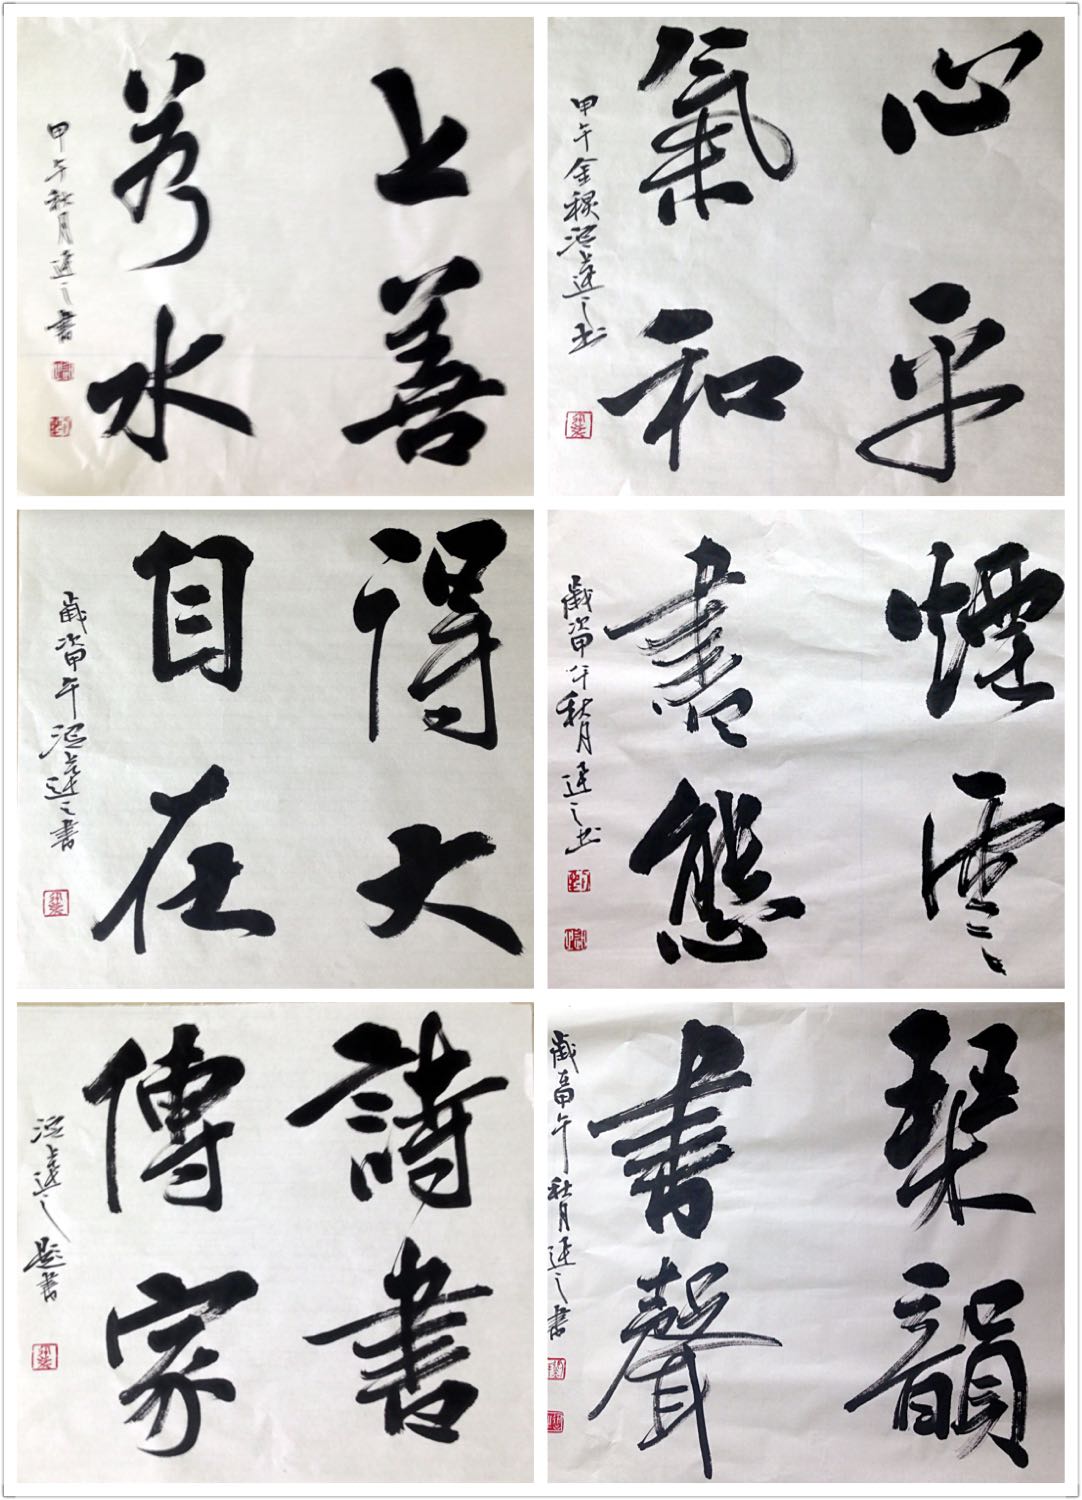 上善
若水
甲午秋月達之書
心平
氣和
甲午金秋
達之书
得大
自在
歲次甲午
達之書
煙雲
盡態
歲次甲午秋月達之书
詩書
傳家
達之題書
琴韻
書聲
歲在甲午秋月達之書